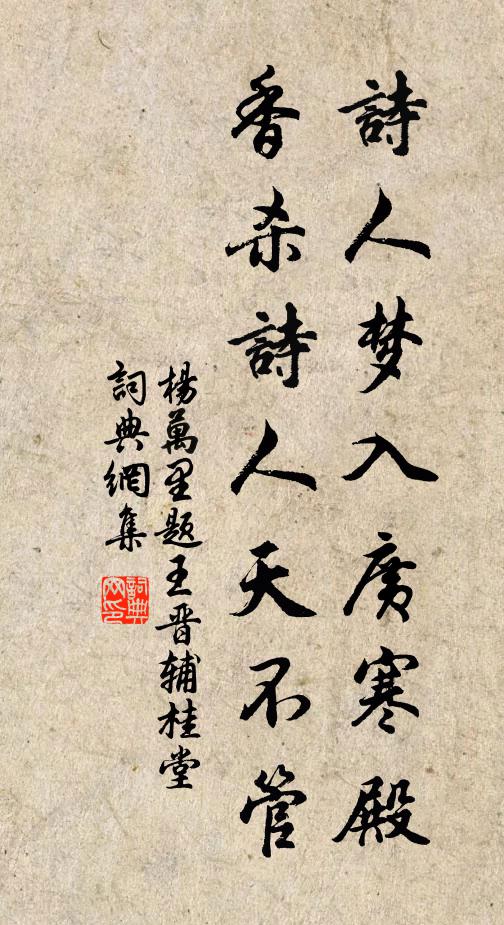 詩人梦入廣寒殿
香杀詩人天不管
楊萬里题王晋辅桂堂
詞典網集
詞典网印